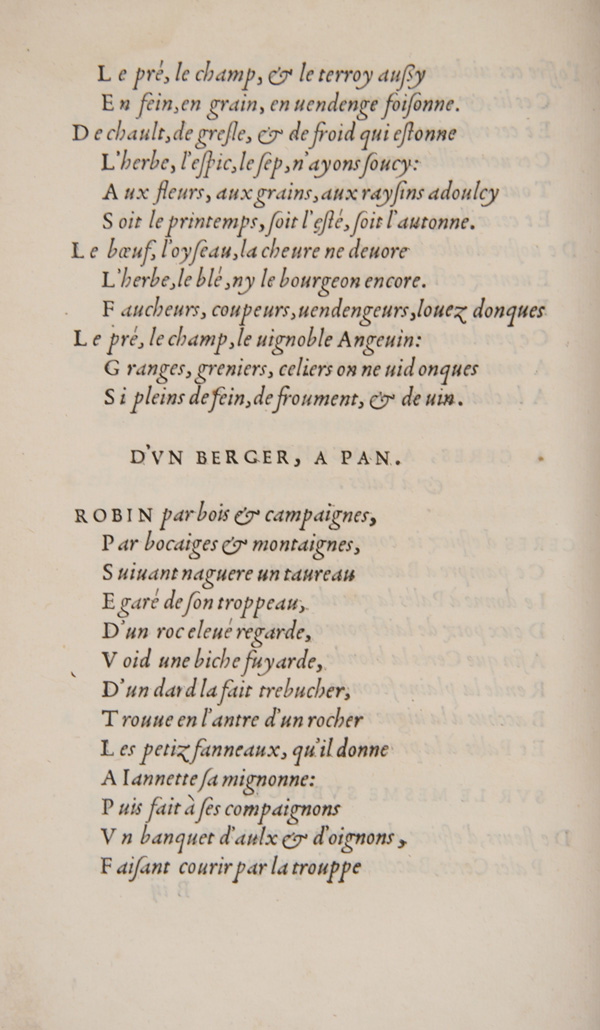 Le pré, le champ, & le terroy außy
En fein, en grain, en uendenge foiſonne.
De chault, de greſle, & de froid qui eſtonne
L'herbe, l'eſpic, le ſep, n'ayons ſoucy:
Aux fleurs, aux grains, aux rayſins adoulcy
Soit le printemps, ſoit l'eſté, ſoit l'autonne.
Le bœuf, l'oyſeau, la cheure ne deuore
L'herbe, le blé, ny le bourgeon encore.
Faucheurs, coupeurs, uendengeurs, louez donques
Le pré, le champ, le uignoble Angeuin:
Granges, greniers, celiers on ne uid onques
Si pleins de fein, de froument, & de uin.
D'VN BERGER, A PAN.
ROBIN par bois & campaignes,
Par bocaiges & montaignes,
Suiuant naguere un taureau
Egaré de ſon troppeau,
D'un roc eleué regarde,
Void une biche fuyarde,
D'un dard la fait trebucher,
Trouue en l'antre d'un rocher
Les petiz fanneaux, qu'il donne
A Iannette ſa mignonne:
Puis fait à ſes compaignons
Vn banquet d'aulx & d'oignons,
Faiſant courir par la trouppe